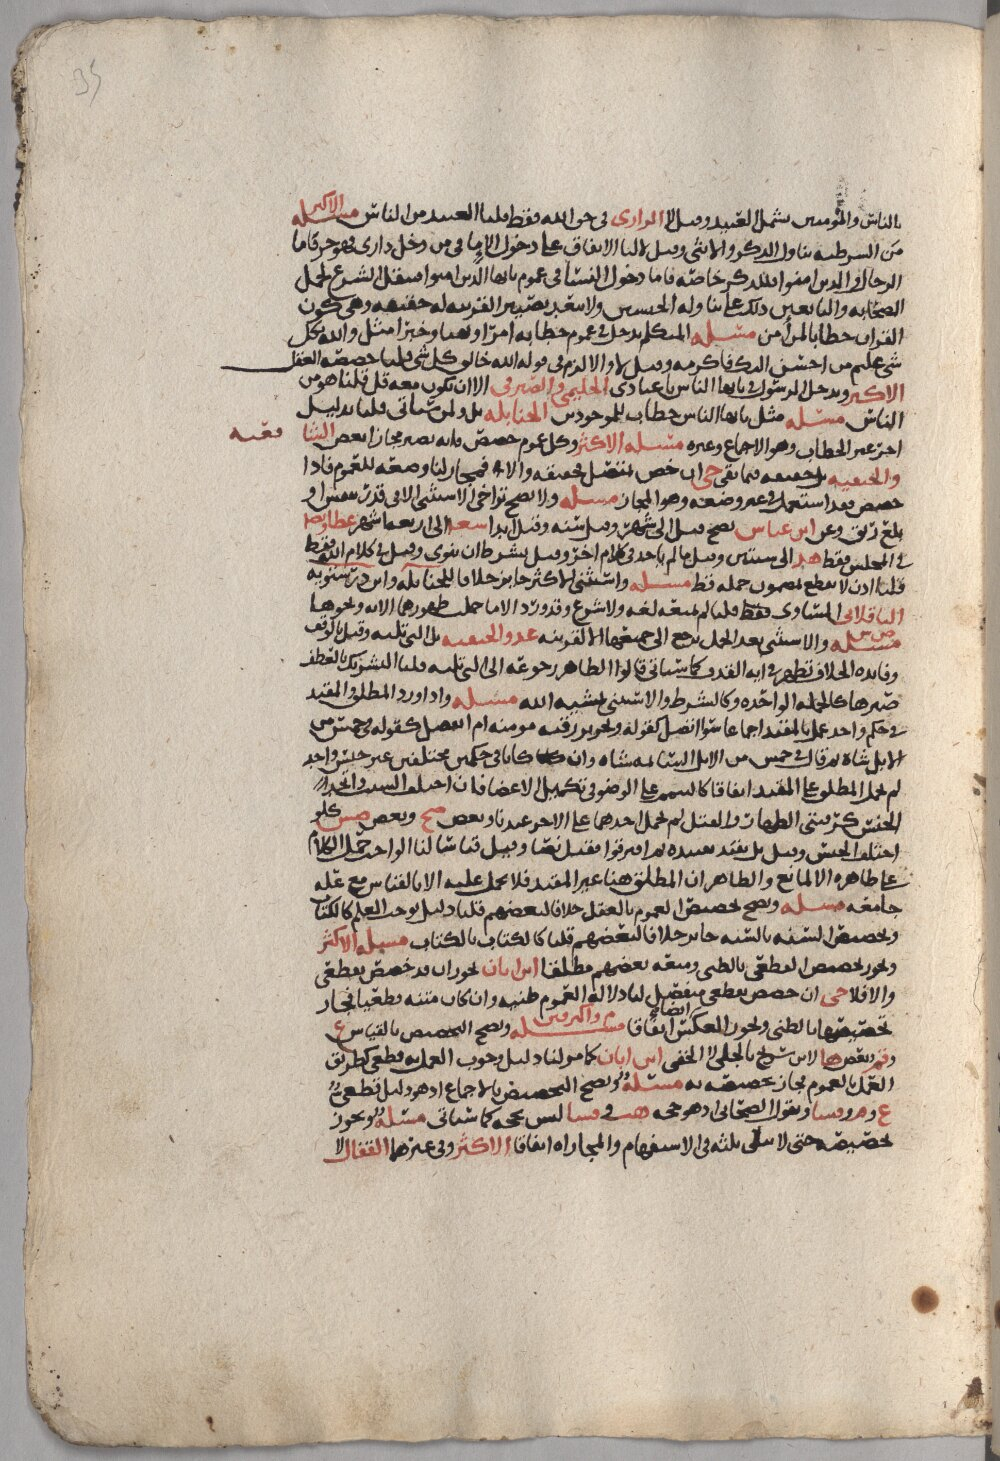 35
بالناس والمومنين يشمل العبيد وقيل لا الرازى فى حق الله فقط قلنا العبيد من الناس مسله الاكثر
من الشرطيه يتناول الذكر والانثى وقيل لا لنا الاتفاق على دخول الاما فى من دخل دارى فهو حر فاما
الرجال والذين امنوا فللذكر خاصه فاما دخول النسا فى عموم يايها الذين امنوا فبنقل الشرع لحمل
الصحابه والتابعين ذلك على تناوله الجنسين ولا يبعد تصيير القرينه له حقيقه وهى كون
القران خطابا لمرا من مسله المتكلم يدخل فى عموم خطابه امرا ونهيا وخبرا مثل والله بكل
شى عليم من احسن اليك فاكرمه وقيل لا والا لزم فى قوله الله خالق كل شى قلنا خصصه العقل
الاكثر ويدخل الرسول فى يايها الناس يا عبادى الحليمى والصيرفى الا ان يكون معه قل قلنا هو من
الناس مسله مثل يايها الناس خطاب للموجودين الحنابله بل ولمن سياتى قلنا بدليل
اخر غير الخطاب وهو الاجماع وغيره مسله الاكثر وكل عموم خصص فانه يصير مجازا بعض الشا
فعيه
والحنفيه بل حقيقه فيما بقى حى ان خص بمتصل فحقيقه والا فمجاز لنا وضعه للعموم فاذا
خصص فقد استعمل فى غير وضعه وهو المجاز مسله ولا يصح تراخى الاستثنى الا فى قدر تنفس او
بلع ريق وعن ابن عباس يصح قيل الى شهر وقيل سنه وقيل ابدا سعيد الى اربعه اشهر عطا وط
فى المجلس فقط هد الى سنتين وقيل ما لم ياخذ فى كلام اخر وقيل بشرط ان ينوى وقيل فى كلام الله فقط
قلنا اذن لا يقطع بمضمون جمله قط مسله واستثنى الاكثر جايز خلافا للحنابله وابن درستويه
الباقلانى المساوى فقط قلنا لم يمنعه لغه ولا شرع وقد ورد الا ما حملت ظهورهما الايه ونحوها
مسله والاستثنى بعد الجمل يرجع الى جميعها الا لقرينه عد والحنفيه بل التى تليه وقيل بالوقف
وفايده الخلاف تظهر فى ايه القذف كما سياتى قالوا الظاهر رجوعه الى التى تليه قلنا التشريك بالعطف
صيرها كالجمله الواحده وكالشرط والاستثنى بمشيه الله مسله واذا ورد المطلق والمقيد
فى حكم واحد عمل بالمقيد اجماعا سوا اتصل كقوله وتحرير رقبه مومنه ام انفصل كقوله فى خمس من
الابل شاه ثم قال فى خمس من الابل السايمه شاه وان كانا فى حكمين مختلفين غير جنس واحد
لم يحمل المطلق على المقيد اتفاقا كالتيمم على الوضو فى تكميل الاعضا فان اختلف السبب واتحد
الجنس كرقبتى الظهار والقتل لم يحمل احدهما على الاخر عندنا وبعض صح وبعض صش كلو
اختلف الجنس وقيل بل يقيد بقيده ثم افترقوا فقيل نصا وقيل قياسا لنا الواجب حمل الكلام
على ظاهره الا لمانع والظاهر ان المطلق هنا غير المقيد فلا يحمل عليه الا بالقياس مع عله
جامعه مسله ويصح تخصيص العموم بالعقل خلافا لبعضهم قلنا دليل يوجب العلم كالكتاب
وتخصيص السنه بالسنه جايز خلافا لبعضهم قلنا كالكتاب بالكتاب مسله الاكثر
ويجوز تخصيص القطعى بالظنى ومنعه بعضهم مطلقا ابن ابان يجوز ان قد خصص بقطعى
والا فلا حى ان خصص بقطعى منفصل لنا دلاله العموم ظنيه وان كان متنه قطعيا فجاز
تخصيصها بالظنى ويجوز العكس ايضا اتفاقا مسله م واكثر ويصح التخصيص بالقياس ع
وقم وبعض ها لا ابن سريج بالجلى لا الخفى ابن ابان كما مر لنا دليل وجوب العمل به قطعى كطريق
العمل بالعموم فجاز تخصيصه به مسله ويصح التخصيص بالاجماع اذ هو دليل قطعى
ع وم وبقول الصحابى اذ هو حجه هب ليس بحجه كما سياتى مسله ويجوز
تخصيصه حتى لا يبقى ثلثه فى الاستفهام والمجازاه اتفاقا الاكثر وفى غيرهما القفال لا